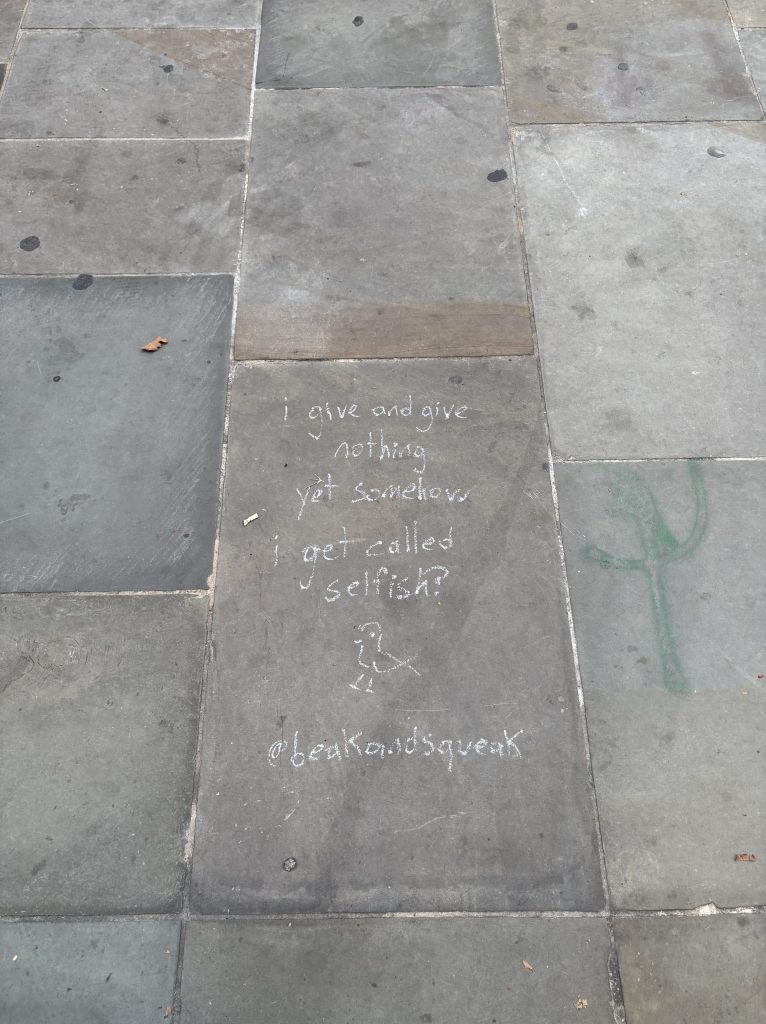 i give and give
nothing
yet somehow
i get called
selfish?
@beakandsqueak